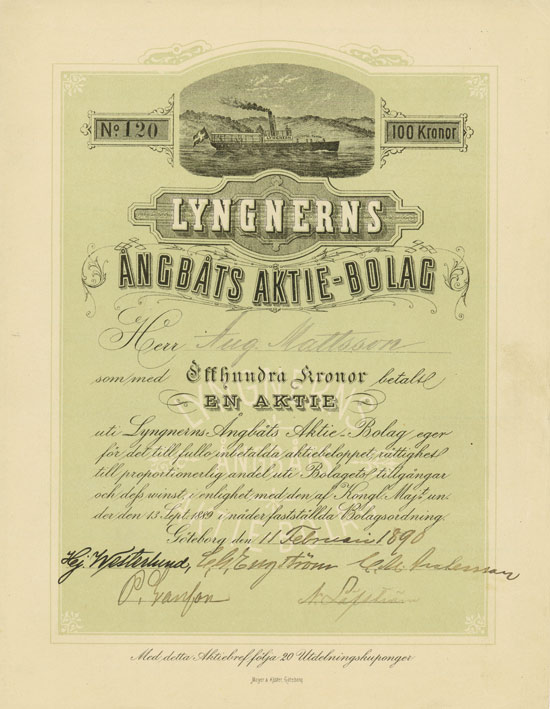 No 120
100 Kronor
LYNGNERNS
ÅNGBÅTS AKTIE-BOLAG
Herr Aug. Mattsson
som med Etthundra Kronor betalt
EN AKTIE
uti Lyngnerns Ångbåts Aktie-Bolag eger
för det till fullo inbetalda aktiebeloppet, rättighet
till proportionerlig andel uti Bolagets tillgångar
och dess vinst, i enlighet med den af Kongl. Maj:t un-
der den 13 Sept. 1889 i nåder fastställda Bolagsordning.
Göteborg den 11 Februari 1890
Hj. Westerlund,
P. Svanson
Med detta Aktiebref följa 20 Utdelningskuponger
Meyer & Köster, Göteborg